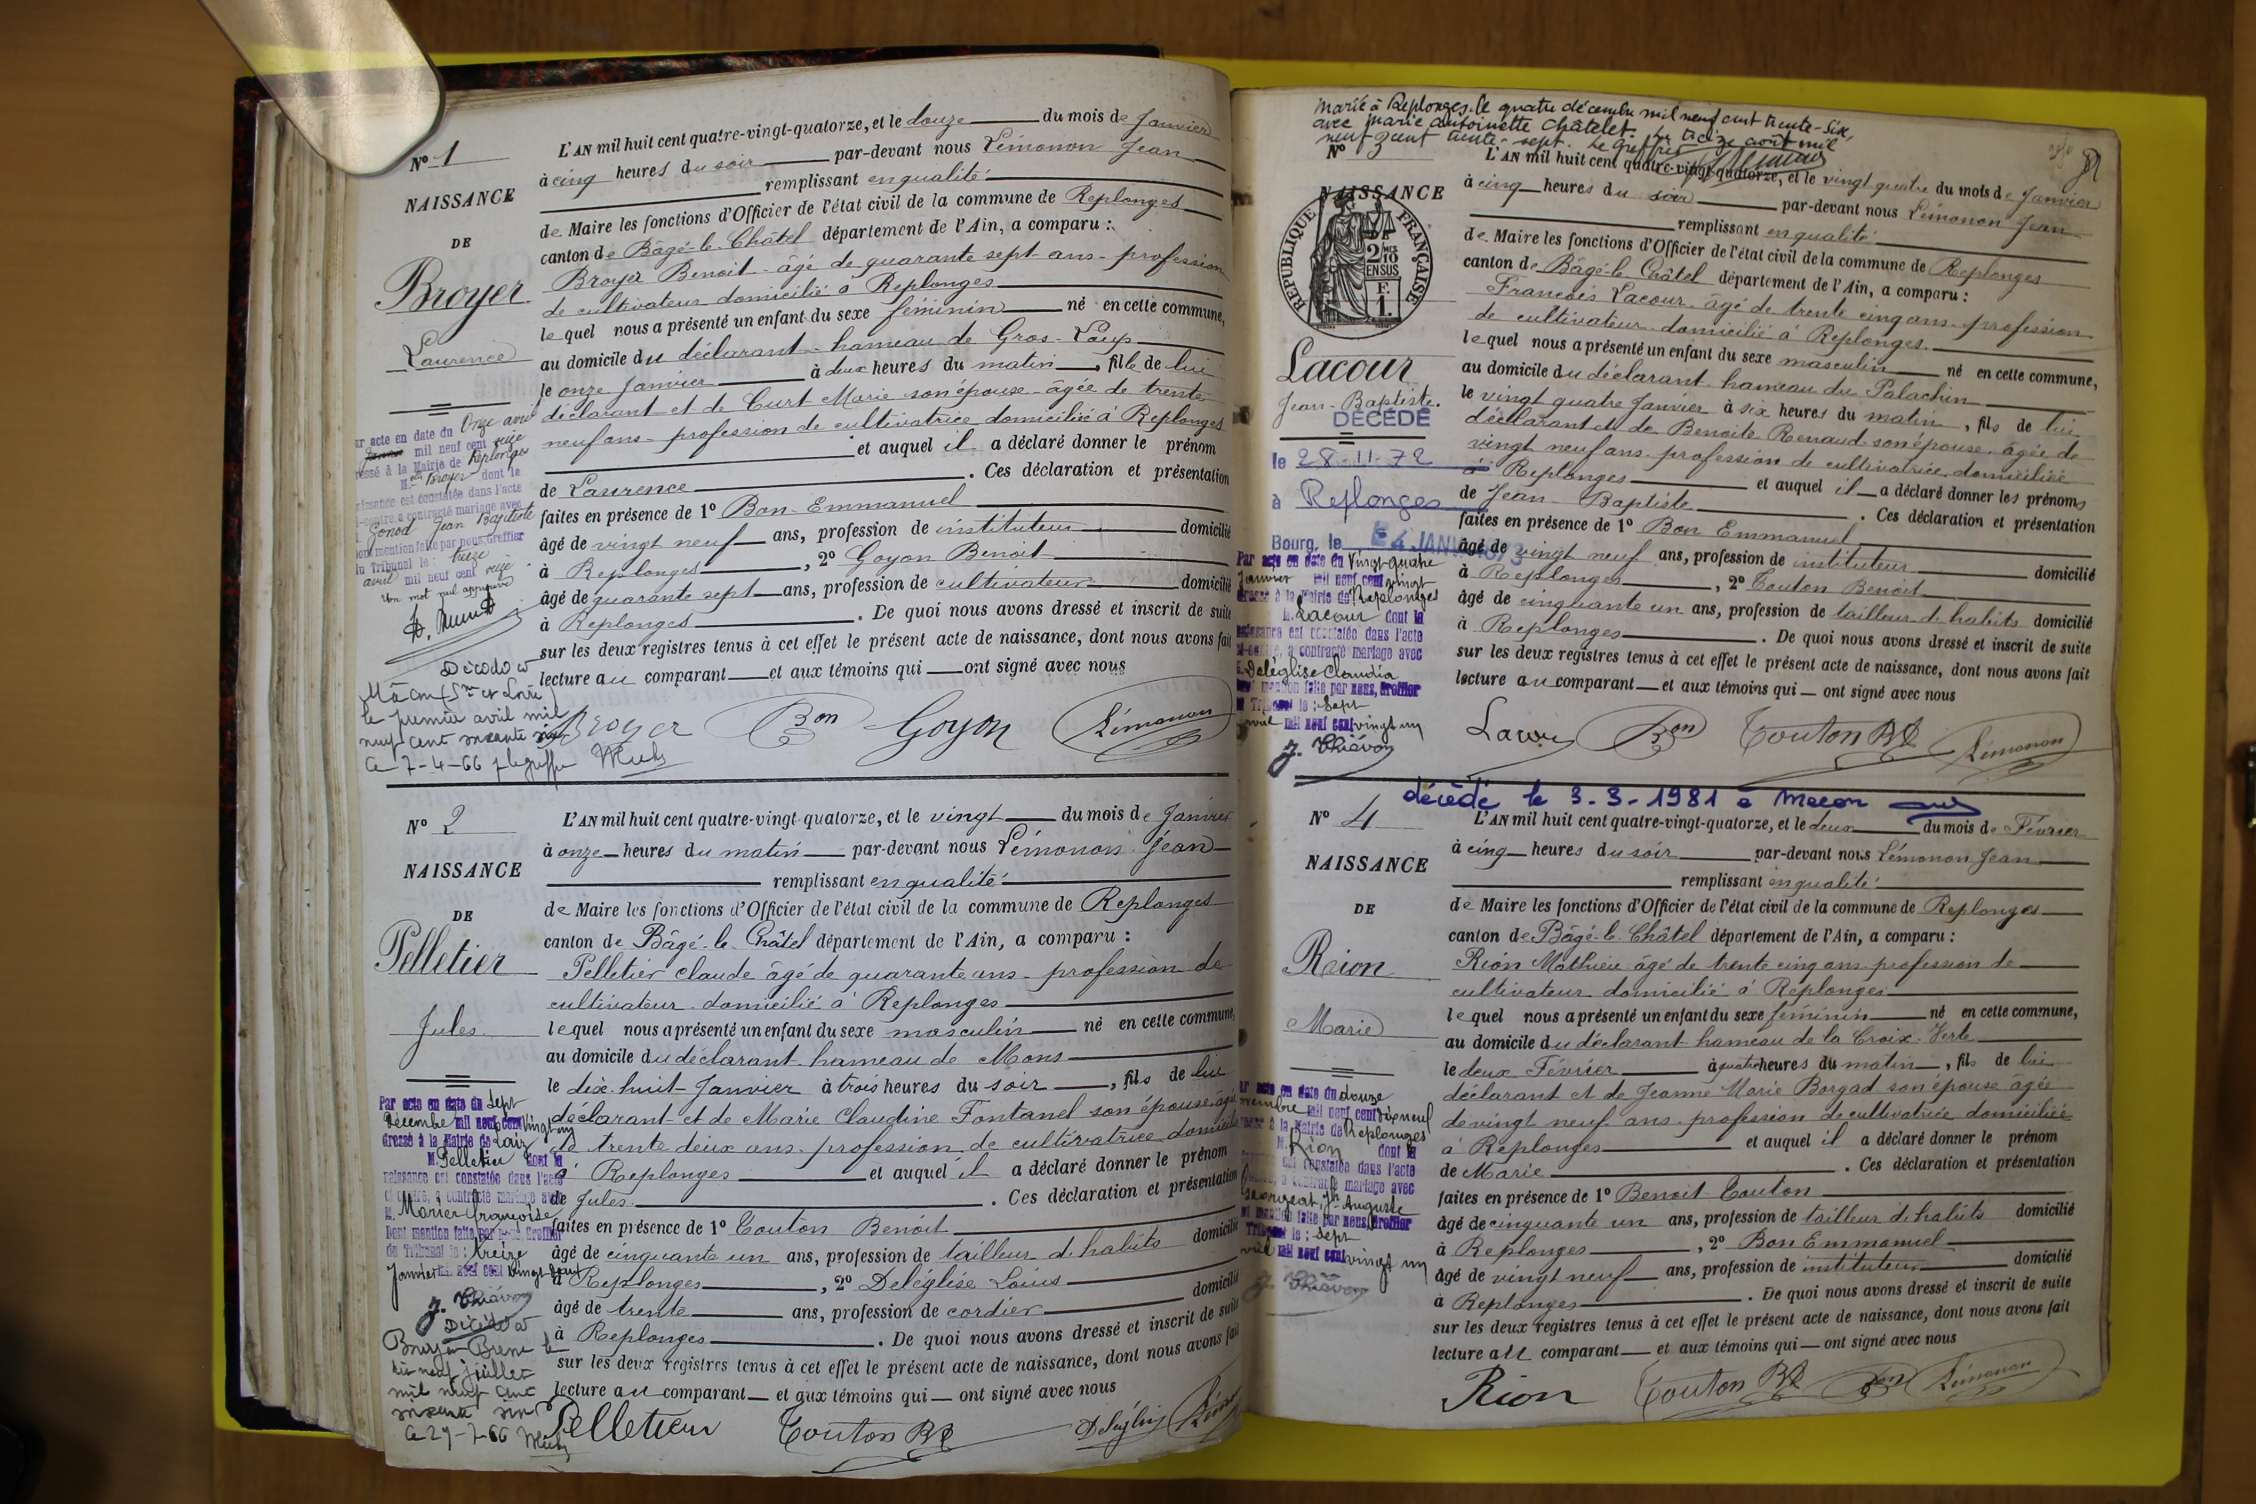 N° 1
NAISSANCE
DE
Broyer
Laurence
L'AN mil huit cent quatre-vingt-quatorze, et le douze du mois de Janvier
à cinq heures du soir par-devant nous Lémonon Jean
remplissant en qualité
de Maire les fonctions d'Officier de l'état civil de la commune de Replonges
canton de Bâgé-le-Châtel département de l'Ain, a comparu :
Broyer Benoit âgé de quarante sept ans profession
de cultivateur domicilié à Replonges
lequel nous a présenté un enfant du sexe féminin né en cette commune,
au domicile du déclarant hameau de Gros-Loup
le onze Janvier à deux heures du matin, fille de lui
déclarant et de Curt Marie son épouse âgée de trente
neuf ans profession de cultivatrice domiciliée à Replonges
et auquel il a déclaré donner le prénom
de Laurence. Ces déclaration et présentation
faites en présence de 1° Bon Emmanuel
âgé de vingt neuf ans, profession de instituteur domicilié
à Replonges, 2° Goyon Benoit
âgé de quarante sept ans, profession de cultivateur domicilié
à Replonges. De quoi nous avons dressé et inscrit de suite
sur les deux registres tenus à cet effet le présent acte de naissance, dont nous avons fait
lecture au comparant et aux témoins qui ont signé avec nous
Broyer Bon Goyon Lémonon
ar acte en date du Onze avril
mil neuf cent seize
ressé à la Mairie de Replonges
M. elle Broyer dont la
naissance est constatée dans l'acte
ci-contre a contracté mariage avec
Gonod Jean Baptiste
Dont mention faite par nous, Greffier
du Tribunal le : treize
avril mil neuf cent seize
Un mot nul approuvé
Décédée à
Mâcon (S. et Loire)
le premier avril mil
neuf cent soixante six
Le 7-4-66
N° 2
NAISSANCE
DE
Pelletier
Jules
L'AN mil huit cent quatre-vingt-quatorze, et le vingt du mois de Janvier
à onze heures du matin par-devant nous Lémonon Jean
remplissant en qualité
de Maire les fonctions d'Officier de l'état civil de la commune de Replonges
canton de Bâgé-le-Châtel département de l'Ain, a comparu :
Pelletier Claude âgé de quarante ans profession de
cultivateur domicilié à Replonges
lequel nous a présenté un enfant du sexe masculin né en cette commune,
au domicile du déclarant hameau de Mons
le dix-huit Janvier à trois heures du soir, fils de lui
déclarant et de Marie Claudine Fontanel son épouse âgée
de trente deux ans profession de cultivatrice domiciliée
à Replonges et auquel il a déclaré donner le prénom
de Jules. Ces déclaration et présentation
faites en présence de 1° Touton Benoit
âgé de cinquante un ans, profession de tailleur d'habits domicilié
à Replonges, 2° Deléglise Louis
âgé de trente ans, profession de cordier domicilié
à Replonges. De quoi nous avons dressé et inscrit de suite
sur les deux registres tenus à cet effet le présent acte de naissance, dont nous avons fait
lecture au comparant et aux témoins qui ont signé avec nous
Pelletier Touton Bt
Par acte en date du Sept
Décembre mil neuf cent vingt un
dressé à la Mairie de Laiz
M. Pelletier dont la
naissance est constatée dans l'acte
ci-contre, a contracté mariage avec
M. Marier Françoise
Dont mention faite par nous, Greffier
du Tribunal le : treize
Janvier mil neuf cent vingt deux
Décédé à
le
dix neuf juillet
mil neuf cent
soixante six
Le 27-7-66
marié à Replonges, le quatre décembre mil neuf cent trente-six,
avec Marie Antoinette Châtelet. Le treize août mil
neuf cent trente-sept. Le Greffier
N° 3
NAISSANCE
DE
REPUBLIQUE FRANÇAISE
2/10 EN SUS
F. 1.
Lacour
Jean-Baptiste
L'AN mil huit cent quatre-vingt-quatorze, et le vingt quatre du mois de Janvier
à cinq heures du soir par-devant nous Lémonon Jean
remplissant en qualité
de Maire les fonctions d'Officier de l'état civil de la commune de Replonges
canton de Bâgé-le-Châtel département de l'Ain, a comparu :
François Lacour âgé de trente cinq ans profession
de cultivateur domicilié à Replonges.
lequel nous a présenté un enfant du sexe masculin né en cette commune,
au domicile du déclarant hameau du Palachin
le vingt quatre Janvier à six heures du matin, fils de lui
déclarant et de Benoite Renaud son épouse âgée de
vingt neuf ans profession de cultivatrice domiciliée
à Replonges et auquel il a déclaré donner les prénoms
de Jean-Baptiste. Ces déclaration et présentation
faites en présence de 1° Bon Emmanuel
âgé de vingt neuf ans, profession de instituteur domicilié
à Replonges, 2° Touton Benoit
âgé de cinquante un ans, profession de tailleur d'habits domicilié
à Replonges. De quoi nous avons dressé et inscrit de suite
sur les deux registres tenus à cet effet le présent acte de naissance, dont nous avons fait
lecture au comparant et aux témoins qui ont signé avec nous
Bon Touton Bt Lémonon
DÉCÉDÉ
le 28-11-72
à Replonges
Bourg, le 4 JANV 1973
Par acte en date du Vingt quatre
Janvier mil neuf cent vingt
dressé à la Mairie de Replonges
M. Lacour dont la
naissance est constatée dans l'acte
ci-contre, a contracté mariage avec
Deléglise Claudia
Dont mention faite par nous, Greffier
du Tribunal le : Sept
avril mil neuf cent vingt un
décédé le 3-3-1981 à Macon
N° 4
NAISSANCE
DE
Rion
Marie
L'AN mil huit cent quatre-vingt-quatorze, et le deux du mois de Février
à cinq heures du soir par-devant nous Lémonon Jean
remplissant en qualité
de Maire les fonctions d'Officier de l'état civil de la commune de Replonges
canton de Bâgé-le-Châtel département de l'Ain, a comparu :
Rion Mathieu âgé de trente cinq ans profession de
cultivateur domicilié à Replonges
lequel nous a présenté un enfant du sexe féminin né en cette commune,
au domicile du déclarant hameau de la Croix-Verte
le deux Février à quatre heures du matin, fils de lui
déclarant et de Jeanne Marie Borgad son épouse âgée
de vingt neuf ans profession de cultivatrice domiciliée
à Replonges et auquel il a déclaré donner le prénom
de Marie. Ces déclaration et présentation
faites en présence de 1° Benoit Touton
âgé de cinquante un ans, profession de tailleur d'habits domicilié
à Replonges, 2° Bon Emmanuel
âgé de vingt neuf ans, profession de instituteur domicilié
à Replonges. De quoi nous avons dressé et inscrit de suite
sur les deux registres tenus à cet effet le présent acte de naissance, dont nous avons fait
lecture au comparant et aux témoins qui ont signé avec nous
Rion Touton Bt Bon Lémonon
ar acte en date du douze
mil neuf cent dix neuf
à la Mairie de Replonges
M. Rion dont la
est constatée dans l'acte
a contracté mariage avec
Jh Auguste
Dont mention faite par nous, Greffier
Tribunal le : Sept
avril mil neuf cent vingt un